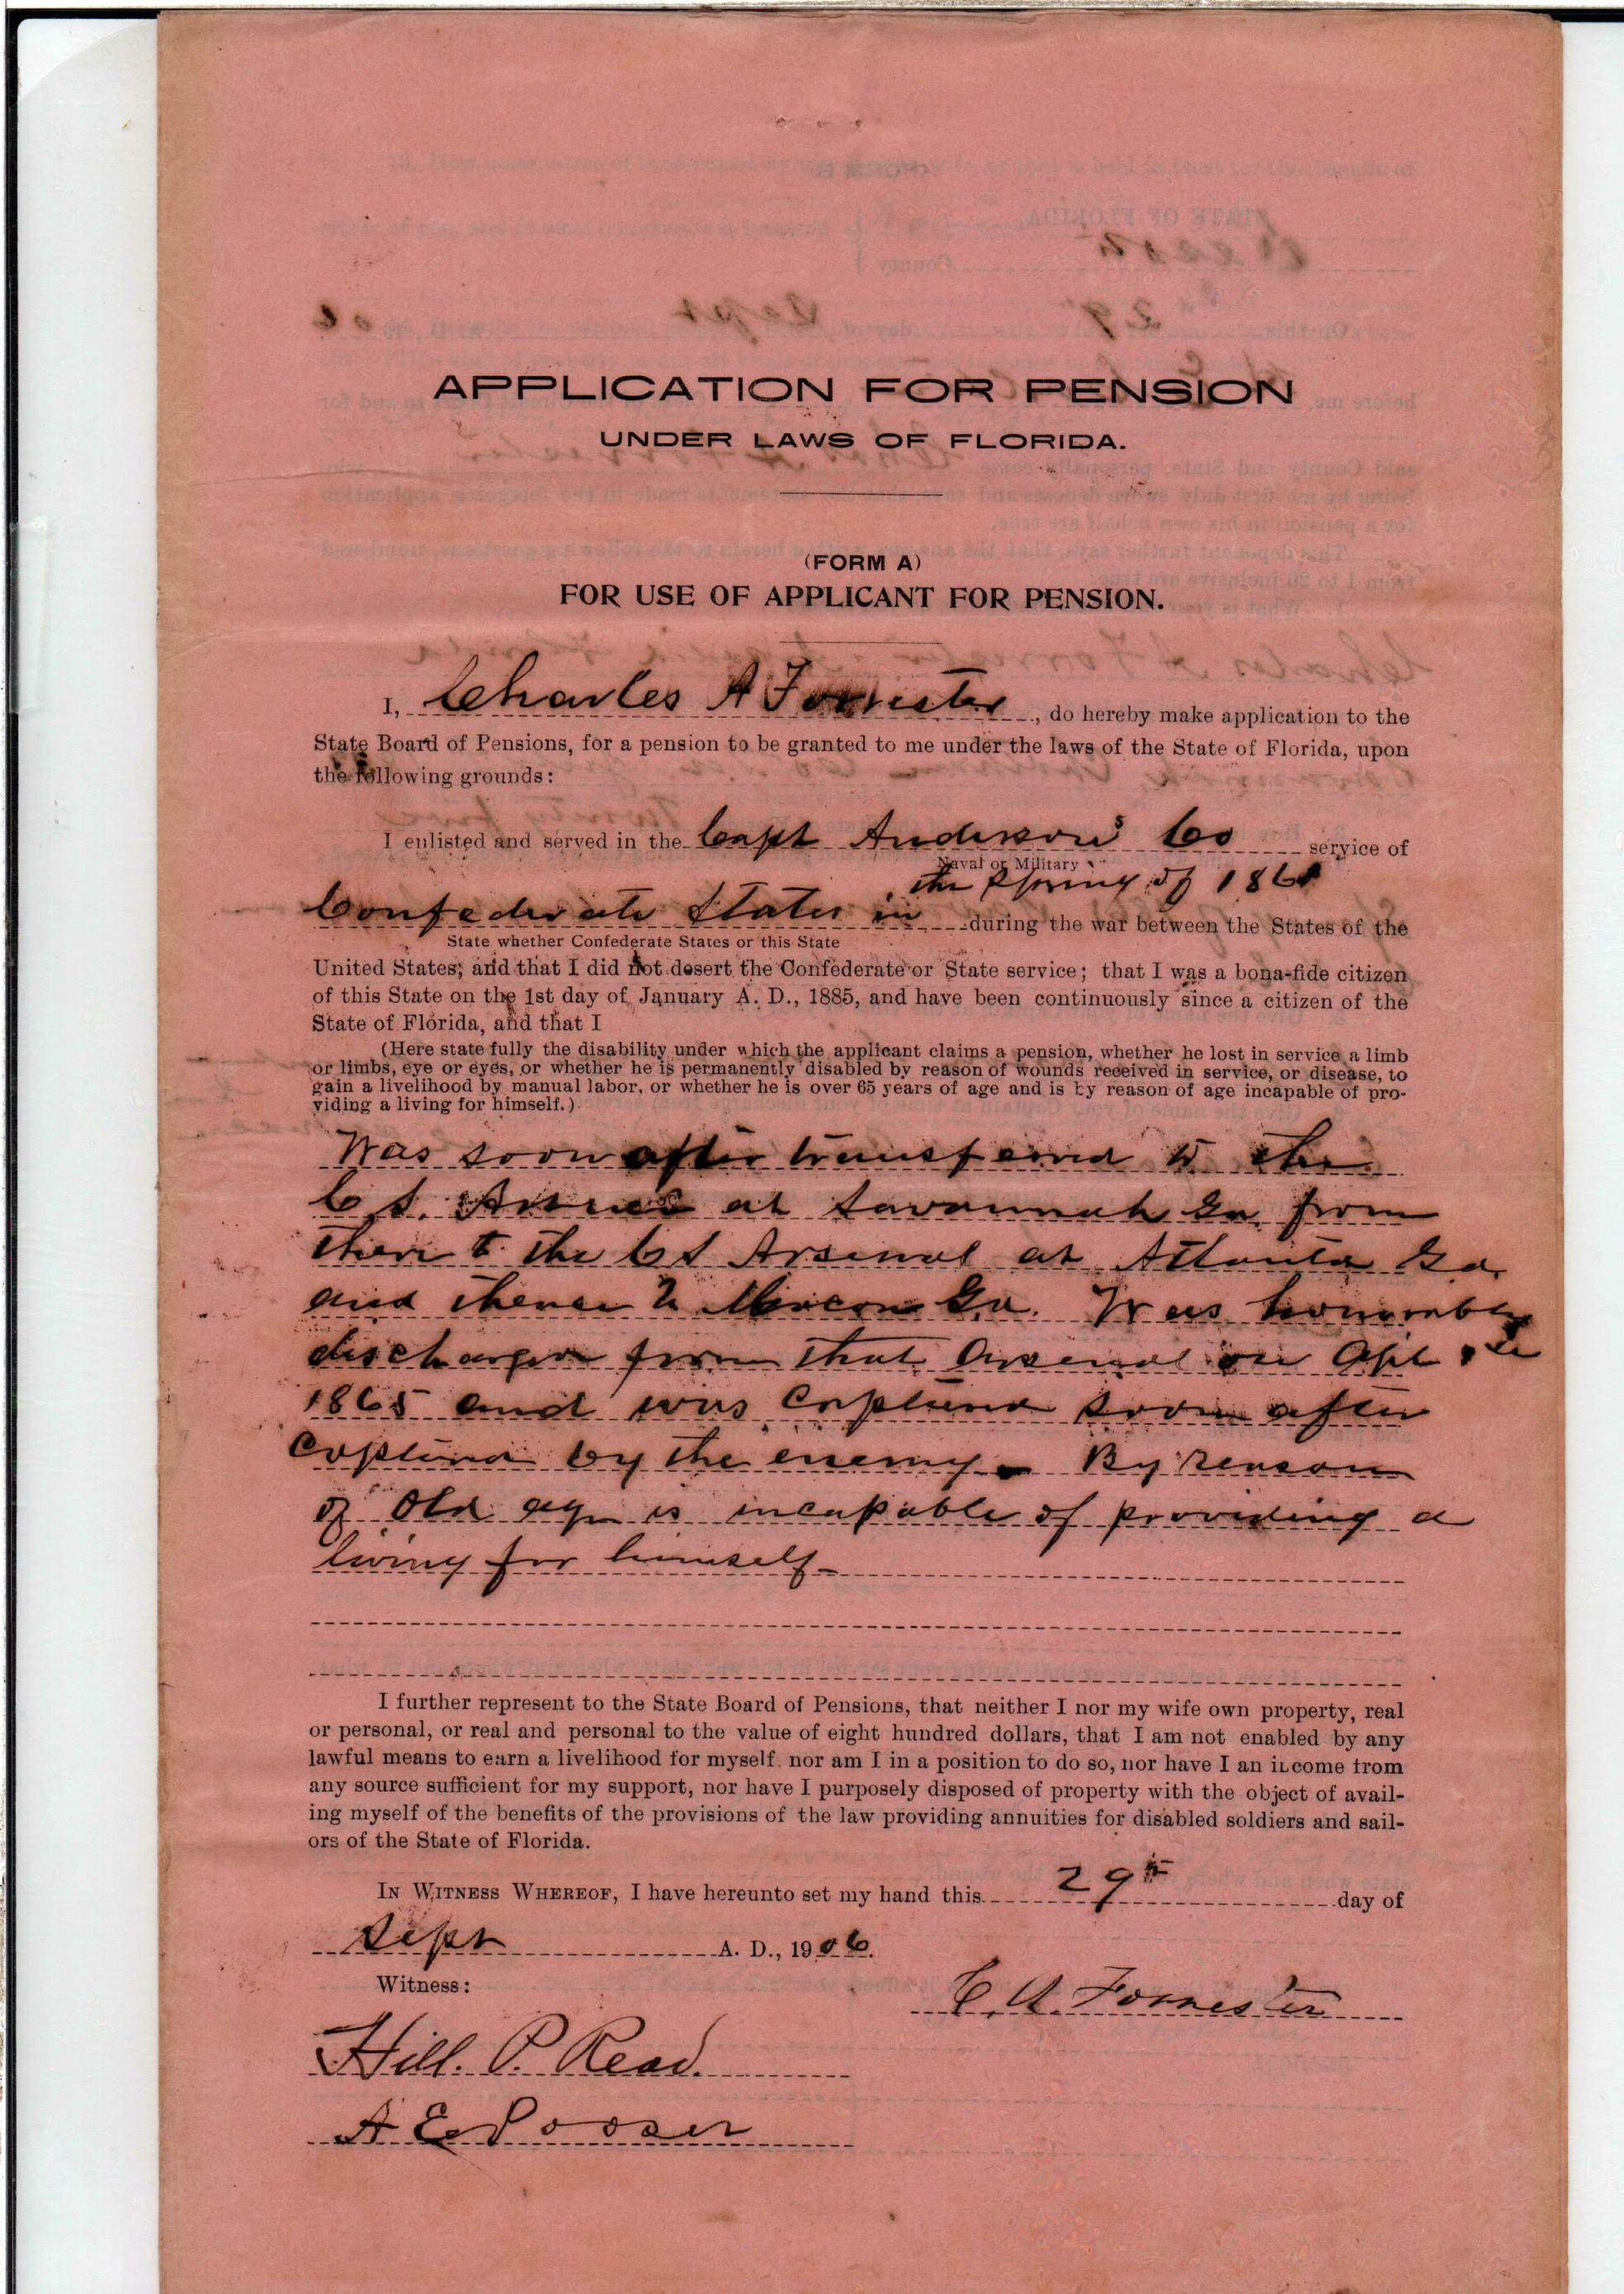 APPLICATION FOR PENSION
UNDER LAWS OF FLORIDA.
(FORM A)
FOR USE OF APPLICANT FOR PENSION.
I, Charles A Forrester, do hereby make application to the
State Board of Pensions, for a pension to be granted to me under the laws of the State of Florida, upon
the following grounds:
I enlisted and served in the Capt Anderson's Co service of
Naval or Military
the Spring of 1861
Confederate States in during the war between the States of the
State whether Confederate States or this State
United States; and that I did not desert the Confederate or State service; that I was a bona-fide citizen
of this State on the 1st day of January A. D., 1885, and have been continuously since a citizen of the
State of Florida, and that I
(Here state fully the disability under which the applicant claims a pension, whether he lost in service a limb
or limbs, eye or eyes, or whether he is permanently disabled by reason of wounds received in service, or disease, to
gain a livelihood by manual labor, or whether he is over 65 years of age and is by reason of age incapable of pro-
viding a living for himself.)
Was soon after transferred to the
C S. at Savannah Ga. from
there to the C S Arsenal at Atlanta Ga.
and thence to Macon Ga. Was honorably
discharged from that Arsenal on Apl
1865 and was captured soon after
captured by the enemy. By reason
of Old age is incapable of providing a
living for himself
I further represent to the State Board of Pensions, that neither I nor my wife own property, real
or personal, or real and personal to the value of eight hundred dollars, that I am not enabled by any
lawful means to earn a livelihood for myself, nor am I in a position to do so, nor have I an income from
any source sufficient for my support, nor have I purposely disposed of property with the object of avail-
ing myself of the benefits of the provisions of the law providing annuities for disabled soldiers and sail-
ors of the State of Florida.
IN WITNESS WHEREOF, I have hereunto set my hand this 29th day of
Sept A. D., 1906.
Witness:
C. A. Forrester
Hill. P. Read.
A E Pooser